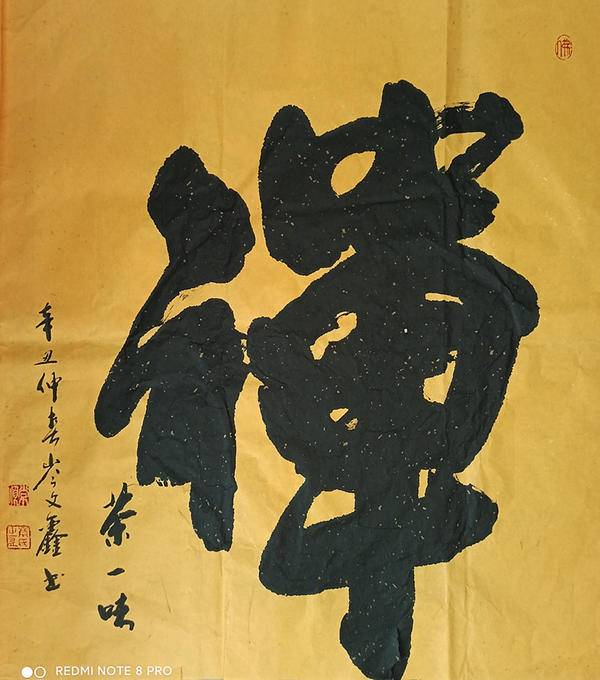 禪
茶一味
辛丑仲春岑文鑫书
佛
REDMI NOTE 8 PRO